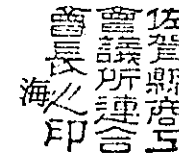 佐賀縣商工
會議所連合
會會長之印
海